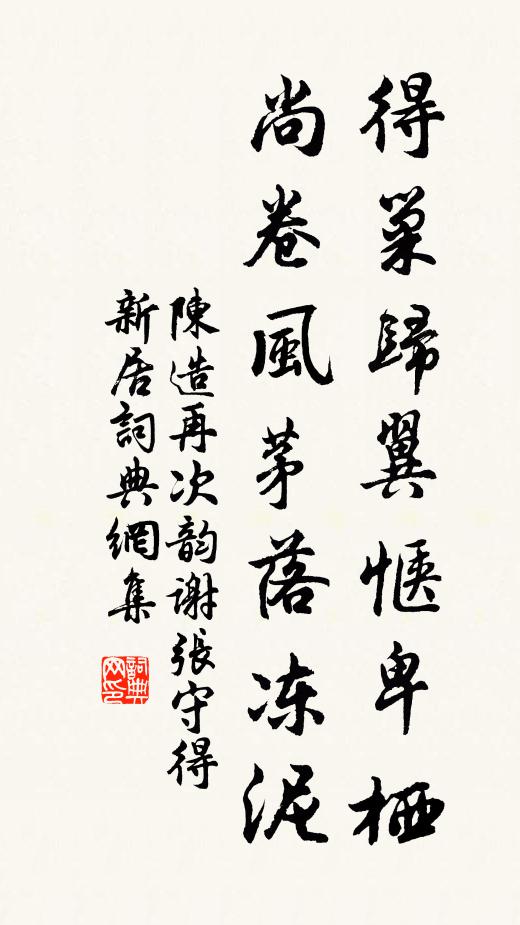 得巢歸翼惬卑栖
尚卷風茅落冻泥
陳造再次韵謝張守得
新居詞典網集
詞典网印